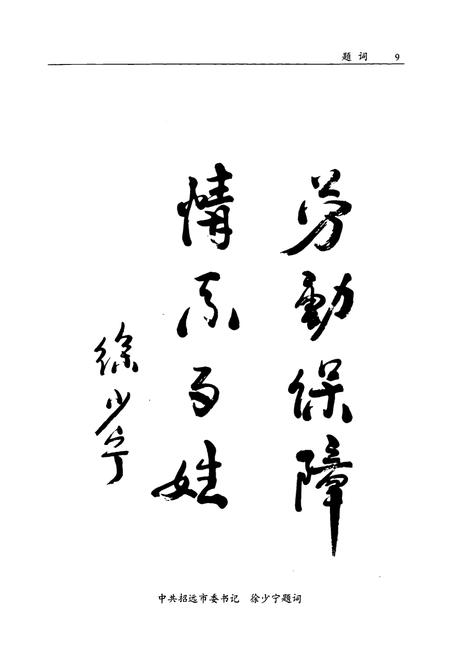 题词 9
劳動保障
情系百姓
徐少宁
中共招远市委书记 徐少宁题词